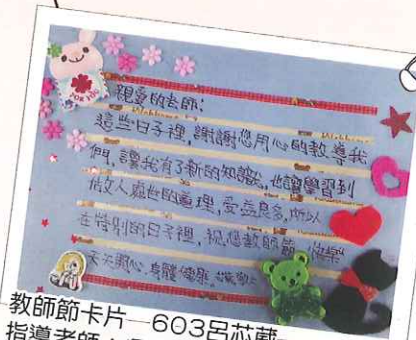 FOR YOU
親愛的老師：
這些日子裡，謝謝您用心的教導我
們，讓我有了新的知識，也讓學習到
做人處世的道理，受益良多，所以
在特別的日子裡，祝您教師節 快樂
天天開心、身體健康
教師節卡片—603呂芯葳
指導老師